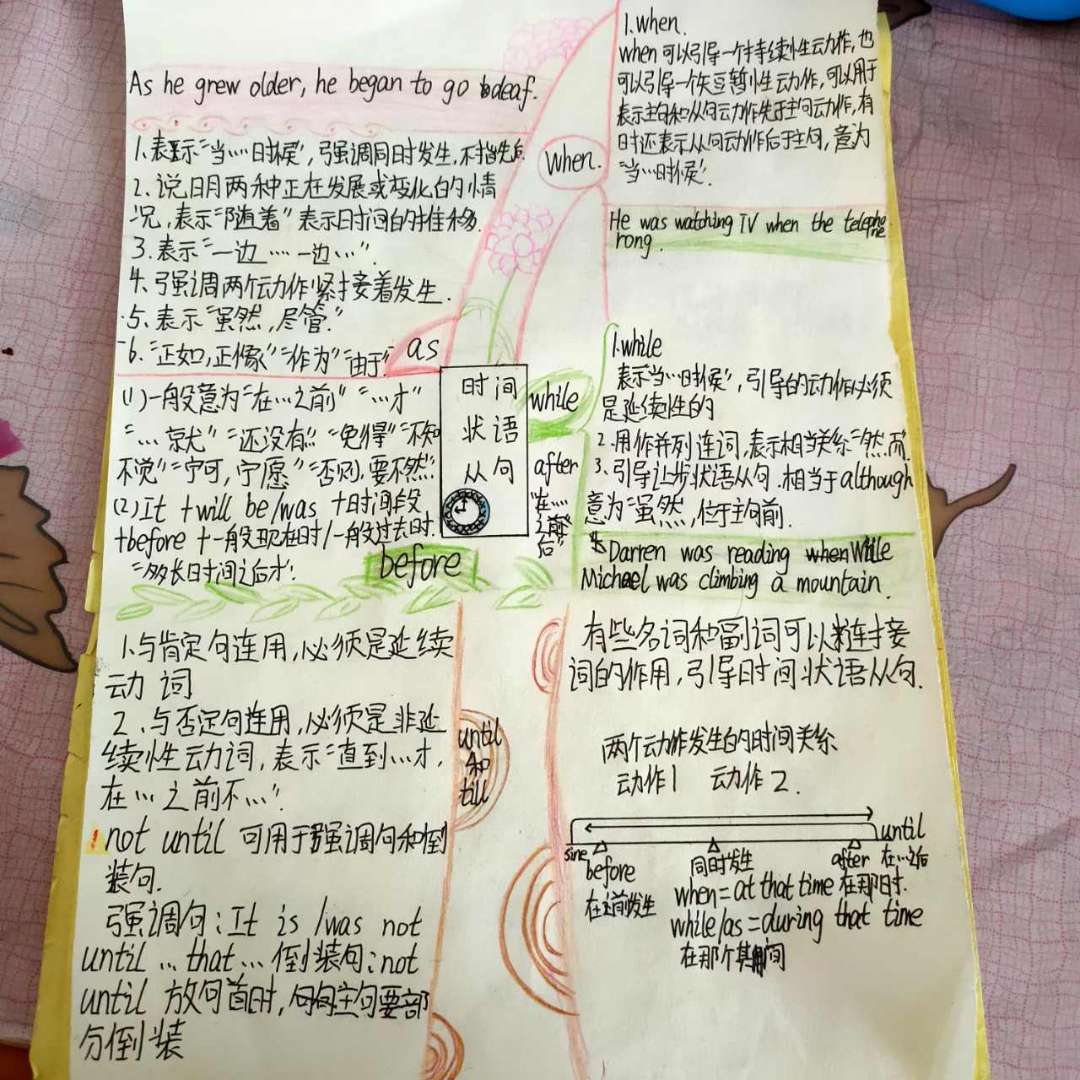 As he grew older, he began to go deaf.
1.表示"当……时候",强调同时发生,不指先后
2.说明两种正在发展或变化的情
况,表示"随着"表示时间的推移.
3.表示"一边……一边…".
4.强调两个动作紧接着发生.
5.表示"虽然,尽管."
6."正如,正像""作为""由于"
as
1.when.
when可以引导一个持续性动作,也
可以引导一个短暂性动作,可以用于
表示主句和从句动作先于主句动作,有
时还表示从句动作后于主句,意为
"当…时候".
When.
He was watching TV when the telephone
rong.
时间
状语
从句
(1)一般意为"在…之前""…才"
"…就""还没有""免得""不知
不觉""宁可,宁愿""否则,要不然"
(2)It +will be/was +时间段
+before +一般现在时/一般过去时.
"多长时间之后才".
before
while
1.while
表示当…时候",引导的动作必须
是延续性的
2.用作并列连词,表示相当关系"然而"
3.引导让步状语从句.相当于although
意为"虽然,位于主句前.
Darren was reading while
Michael was climbing a mountain.
after
"在…
之后"
1.与肯定句连用,必须是延续
动词
2.与否定句连用,必须是非延
续性动词,表示"直到…才,
在…之前不…".
!not until 可用于强调句和倒
装句.
强调句:It is /was not
until …that…倒装句:not
until 放句首时,主句要部
分倒装
until
和
till
有些名词和副词可以连接
词的作用,引导时间状语从句.
两个动作发生的时间关系
动作1 动作2.
sine
before
在之前发生
同时发生
when=at that time 在那时.
while/as=during that time
在那个期间
after
until
在…之后